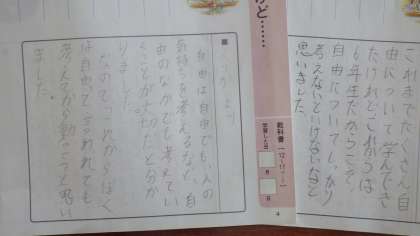 これまでたくさん自
由について学んできた
たけれどこれからは
6年生だからこそ、
自由についてしっかり
考えないといけないなと
思いました。
けど……
教科書
4
自由は自由でも、人の
気持ちを考えるなど、自
由のなかでも考えてい
くことが大切だと分か
りました。
なので、これからぼく
は自由って言われても
考えてから動こうと思い
ました。